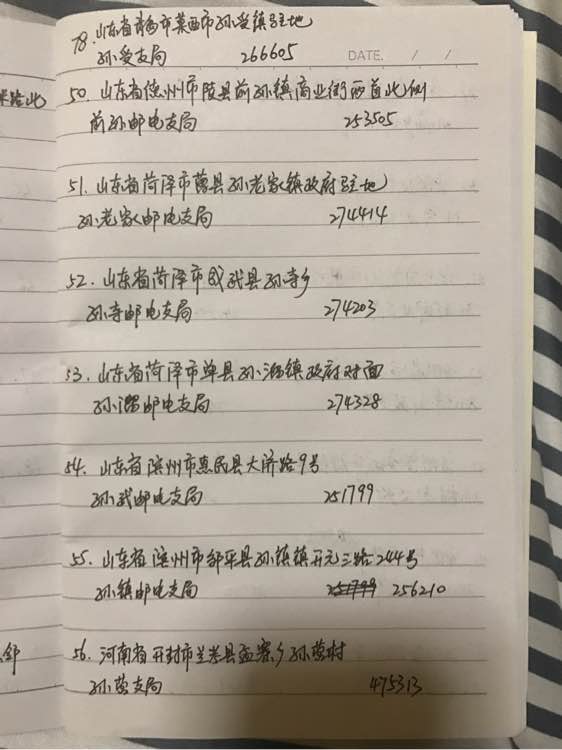 78.山东省青岛市莱西市孙受镇驻地
孙受支局 266605
DATE. / /
50.山东省德州市陵县前孙镇商业街西首北侧
前孙邮电支局 253505
51.山东省菏泽市曹县孙老家镇政府驻地
孙老家邮电支局 274414
52.山东省菏泽市成武县孙寺乡
孙寺邮电支局 274203
53.山东省菏泽市单县孙溜镇政府对面
孙溜邮电支局 274328
54.山东省滨州市惠民县大济路9号
孙武邮电支局 251799
55.山东省滨州市邹平县孙镇镇开元三路244号
孙镇邮电支局 251799 256210
56.河南省开封市兰考县孟寨乡孙营村
孙营支局 475313